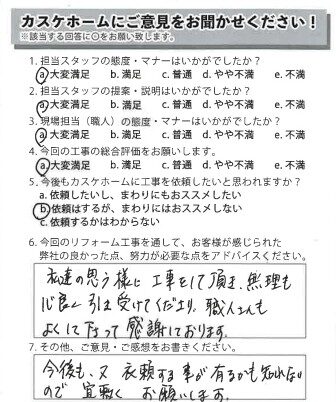 カスケホームにご意見をお聞かせください！
※該当する回答に○をお願い致します。
1. 担当スタッフの態度・マナーはいかがでしたか？
a. 大変満足 b. 満足 c. 普通 d. やや不満 e. 不満
2. 担当スタッフの提案・説明はいかがでしたか？
a. 大変満足 b. 満足 c. 普通 d. やや不満 e. 不満
3. 現場担当（職人）の態度・マナーはいかがでしたか？
a. 大変満足 b. 満足 c. 普通 d. やや不満 e. 不満
4. 今回の工事の総合評価をお願いします。
a. 大変満足 b. 満足 c. 普通 d. やや不満 e. 不満
5. 今後もカスケホームに工事を依頼したいと思われますか？
a. 依頼したいし、まわりにもおススメしたい
b. 依頼はするが、まわりにはおススメしない
c. 依頼するかはわからない
6. 今回のリフォーム工事を通して、お客様が感じられた
弊社の良かった点、努力が必要な点をアドバイスください。
私達の思う様に工事をして頂き、無理も
心良く引き受けてくださり、職人さんも
よくして下さって感謝しております。
7. その他、ご意見・ご感想をお書きください。
今後も、又 依頼する事が有るかも知れない
ので 宜敷く お願いします。